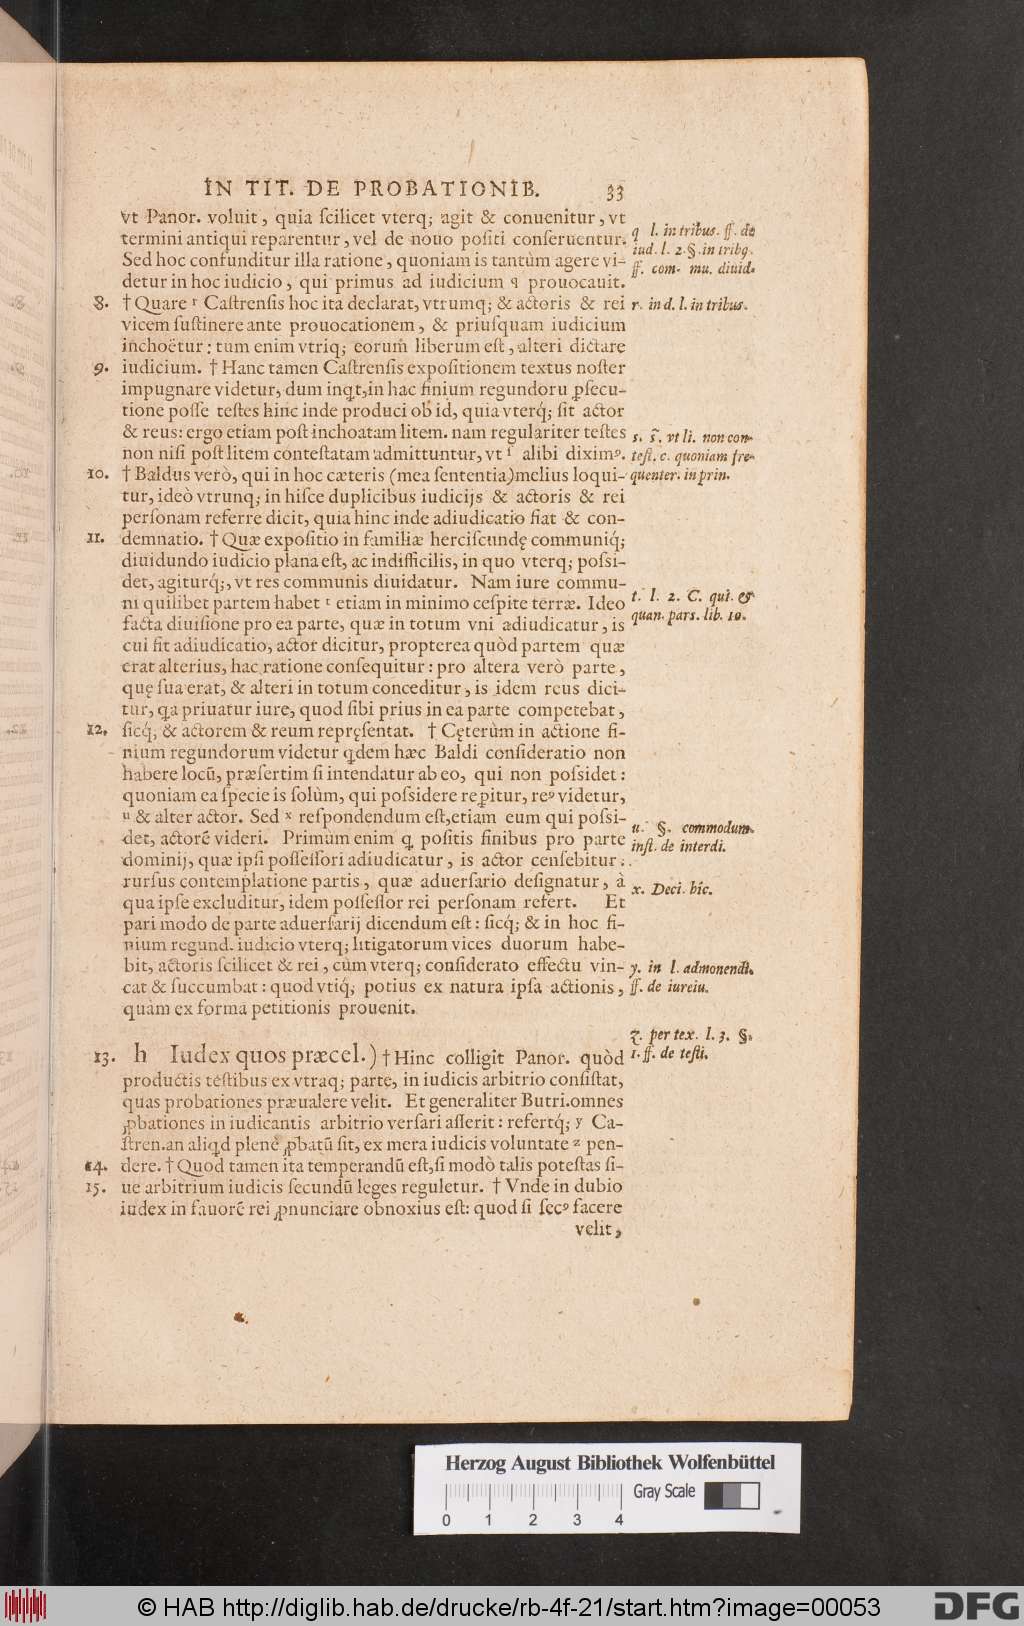 IN TIT. DE PROBATIONIB. 33
vt Panor. voluit, quia ſcilicet vterq; agit & conuenitur, vt
termini antiqui reparentur, vel de nouo poſiti conſeruentur.
Sed hoc confunditur illa ratione, quoniam is tantùm agere vi-
detur in hoc iudicio, qui primus ad iudicium q prouocauit.
8. † Quare r Caſtrenſis hoc ita declarat, vtrumq; & actoris & rei
vicem ſuſtinere ante prouocationem, & priuſquam iudicium
inchoëtur: tum enim vtriq; eorum liberum eſt, alteri dictare
9. iudicium. † Hanc tamen Caſtrenſis expoſitionem textus noſter
impugnare videtur, dum inqt, in hac finium regundoru ꝑſecu-
tione poſſe teſtes hinc inde produci ob id, quia vterq́; ſit actor
& reus: ergo etiam poſt inchoatam litem. nam regulariter teſtes
non niſi poſt litem conteſtatam admittuntur, vt ſ alibi diximꝰ.
10. † Baldus verò, qui in hoc cæteris (mea ſententia) melius loqui-
tur, ideò vtrunq; in hiſce duplicibus iudicijs & actoris & rei
perſonam referre dicit, quia hinc inde adiudicatio fiat & con-
11. demnatio. † Quæ expoſitio in familiæ herciſcundę communiq́;
diuidundo iudicio plana eſt, ac indifficilis, in quo vterq; poſſi-
det, agiturq́;, vt res communis diuidatur. Nam iure commu-
ni quilibet partem habet t etiam in minimo ceſpite terræ. Ideo
facta diuiſione pro ea parte, quæ in totum vni adiudicatur, is
cui fit adiudicatio, actor dicitur, propterea quòd partem quæ
erat alterius, hac ratione conſequitur: pro altera verò parte,
quę ſua erat, & alteri in totum conceditur, is idem reus dici-
tur, qa priuatur iure, quod ſibi prius in ea parte competebat,
12. ſicq́; & actorem & reum repręſentat. † Cęterùm in actione fi-
nium regundorum videtur qdem hæc Baldi conſideratio non
habere locū, præſertim ſi intendatur ab eo, qui non poſsidet:
quoniam ea ſpecie is ſolùm, qui poſsidere reꝑitur, reꝰ videtur,
u & alter actor. Sed x reſpondendum eſt, etiam eum qui poſsi-
det, actorē videri. Primùm enim q poſitis finibus pro parte
dominij, quæ ipſi poſſeſſori adiudicatur, is actor cenſebitur:
rurſus contemplatione partis, quæ aduerſario deſignatur, à
qua ipſe excluditur, idem poſſeſſor rei perſonam refert. Et
pari modo de parte aduerſarij dicendum eſt: ſicq́; & in hoc fi-
nium regund. iudicio vterq; litigatorum vices duorum habe-
bit, actoris ſcilicet & rei, cùm vterq; conſiderato effectu vin-
cat & ſuccumbat: quod vtiq́; potius ex natura ipſa actionis,
quàm ex forma petitionis prouenit.
13. h Iudex quos præcel.) † Hinc colligit Panor. quòd
productis teſtibus ex vtraq; parte, in iudicis arbitrio conſiſtat,
quas probationes præualere velit. Et generaliter Butri. omnes
ꝓbationes in iudicantis arbitrio verſari aſſerit: refertq́; y Ca-
ſtren. an aliqd plenè ꝓbatū ſit, ex mera iudicis voluntate z pen-
14. dere. † Quod tamen ita temperandū eſt, ſi modò talis poteſtas ſi-
15. ue arbitrium iudicis ſecundū leges reguletur. † Vnde in dubio
iudex in fauorē rei ꝓnunciare obnoxius eſt: quod ſi ſecꝰ facere
velit,
q l. in tribus. ff. de
iud. l. 2. §. in tribꝰ.
ff. com- mu. diuid.
r. in d. l. in tribus.
s. ſ. vt li. non con-
teſt. c. quoniam fre-
quenter. in prin.
t. l. 2. C. qui. &
quan. pars. lib. 10.
u. §. commodum.
inſt. de interdi.
x. Deci. hîc.
y. in l. admonendi.
ff. de iureiu.
z. per tex. l. 3. §.
1. ff. de teſti.
Herzog August Bibliothek Wolfenbüttel
Gray Scale
0 1 2 3 4
© HAB http://diglib.hab.de/drucke/rb-4f-21/start.htm?image=00053
DFG